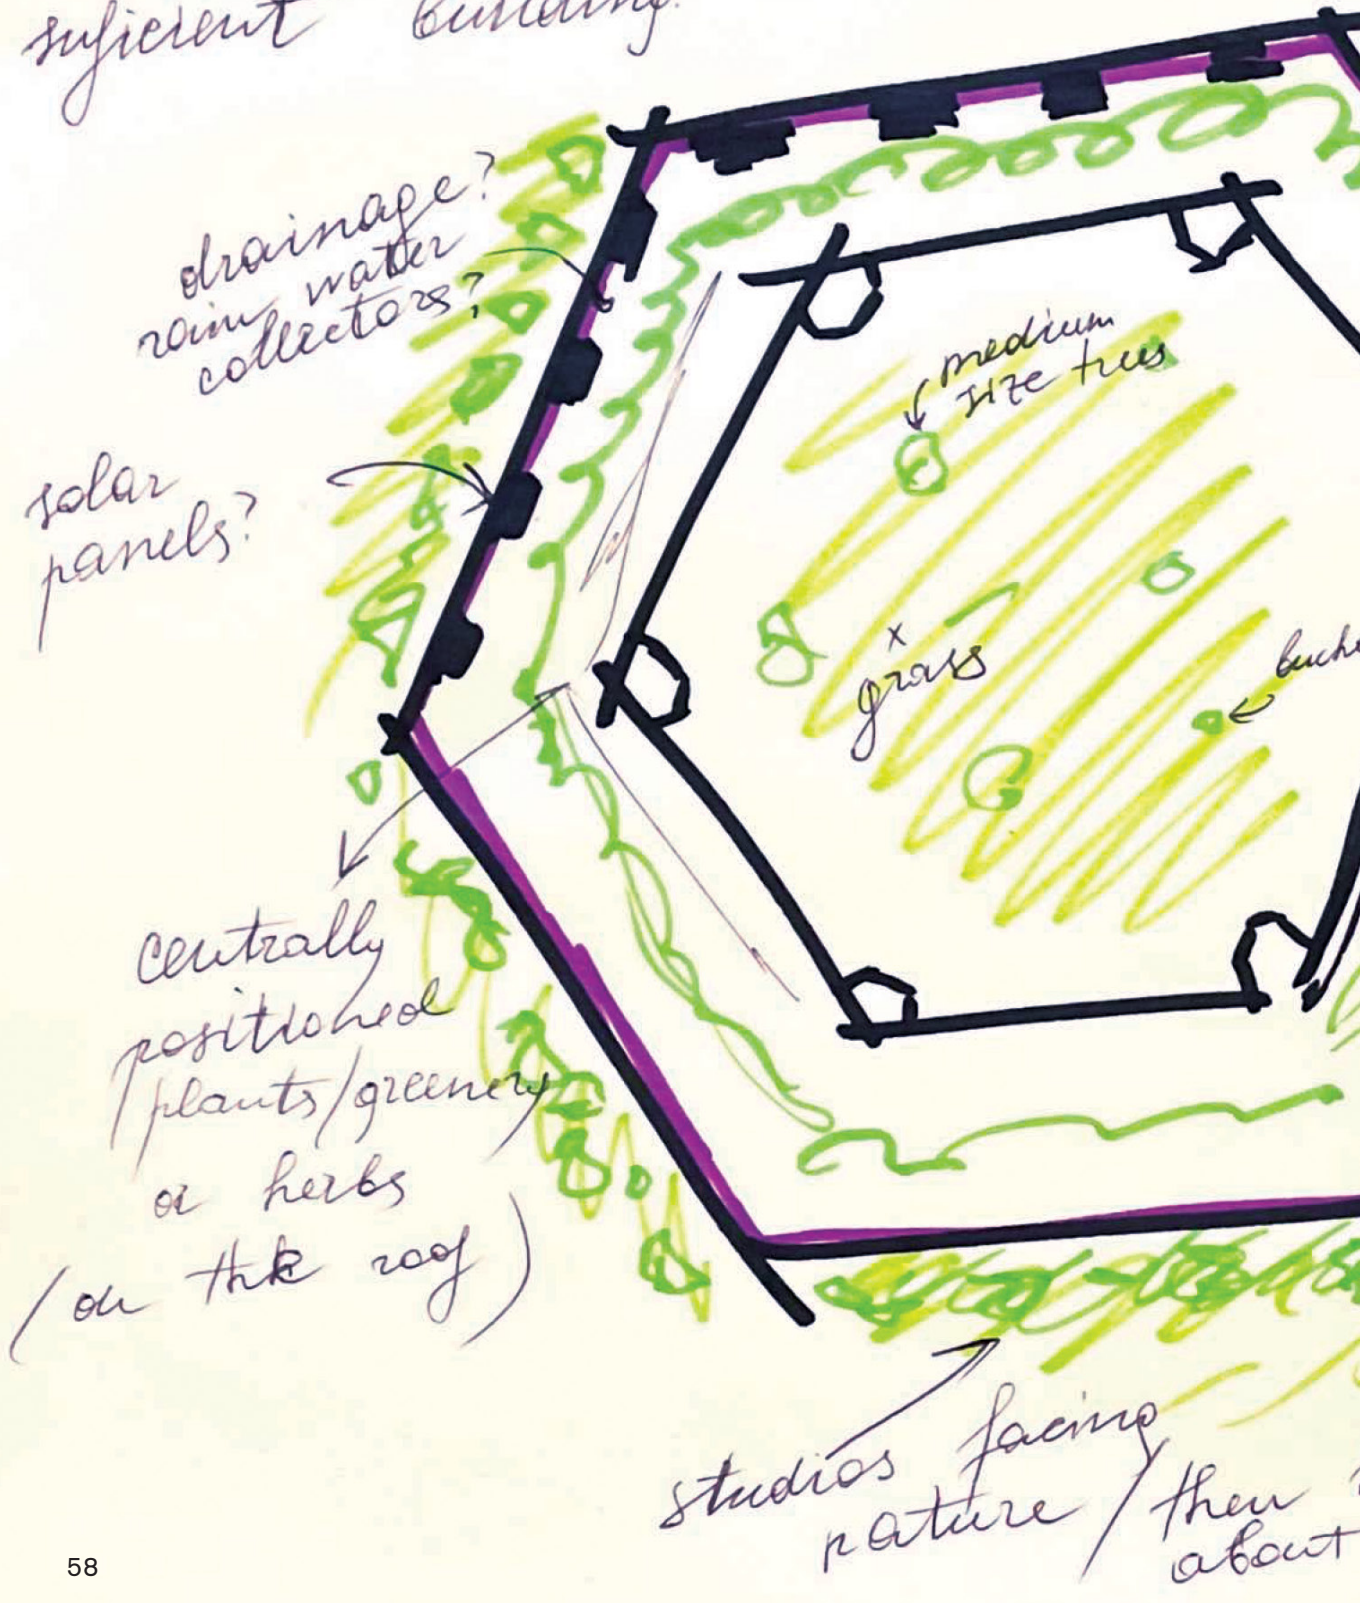 suficient building.
drainage?
rain water
collectors?
solar
panels?
medium
size trees
x
grass
centrally
positioned
plants/greenery
or herbs
(on the roof)
studios facing
nature / then
about
58